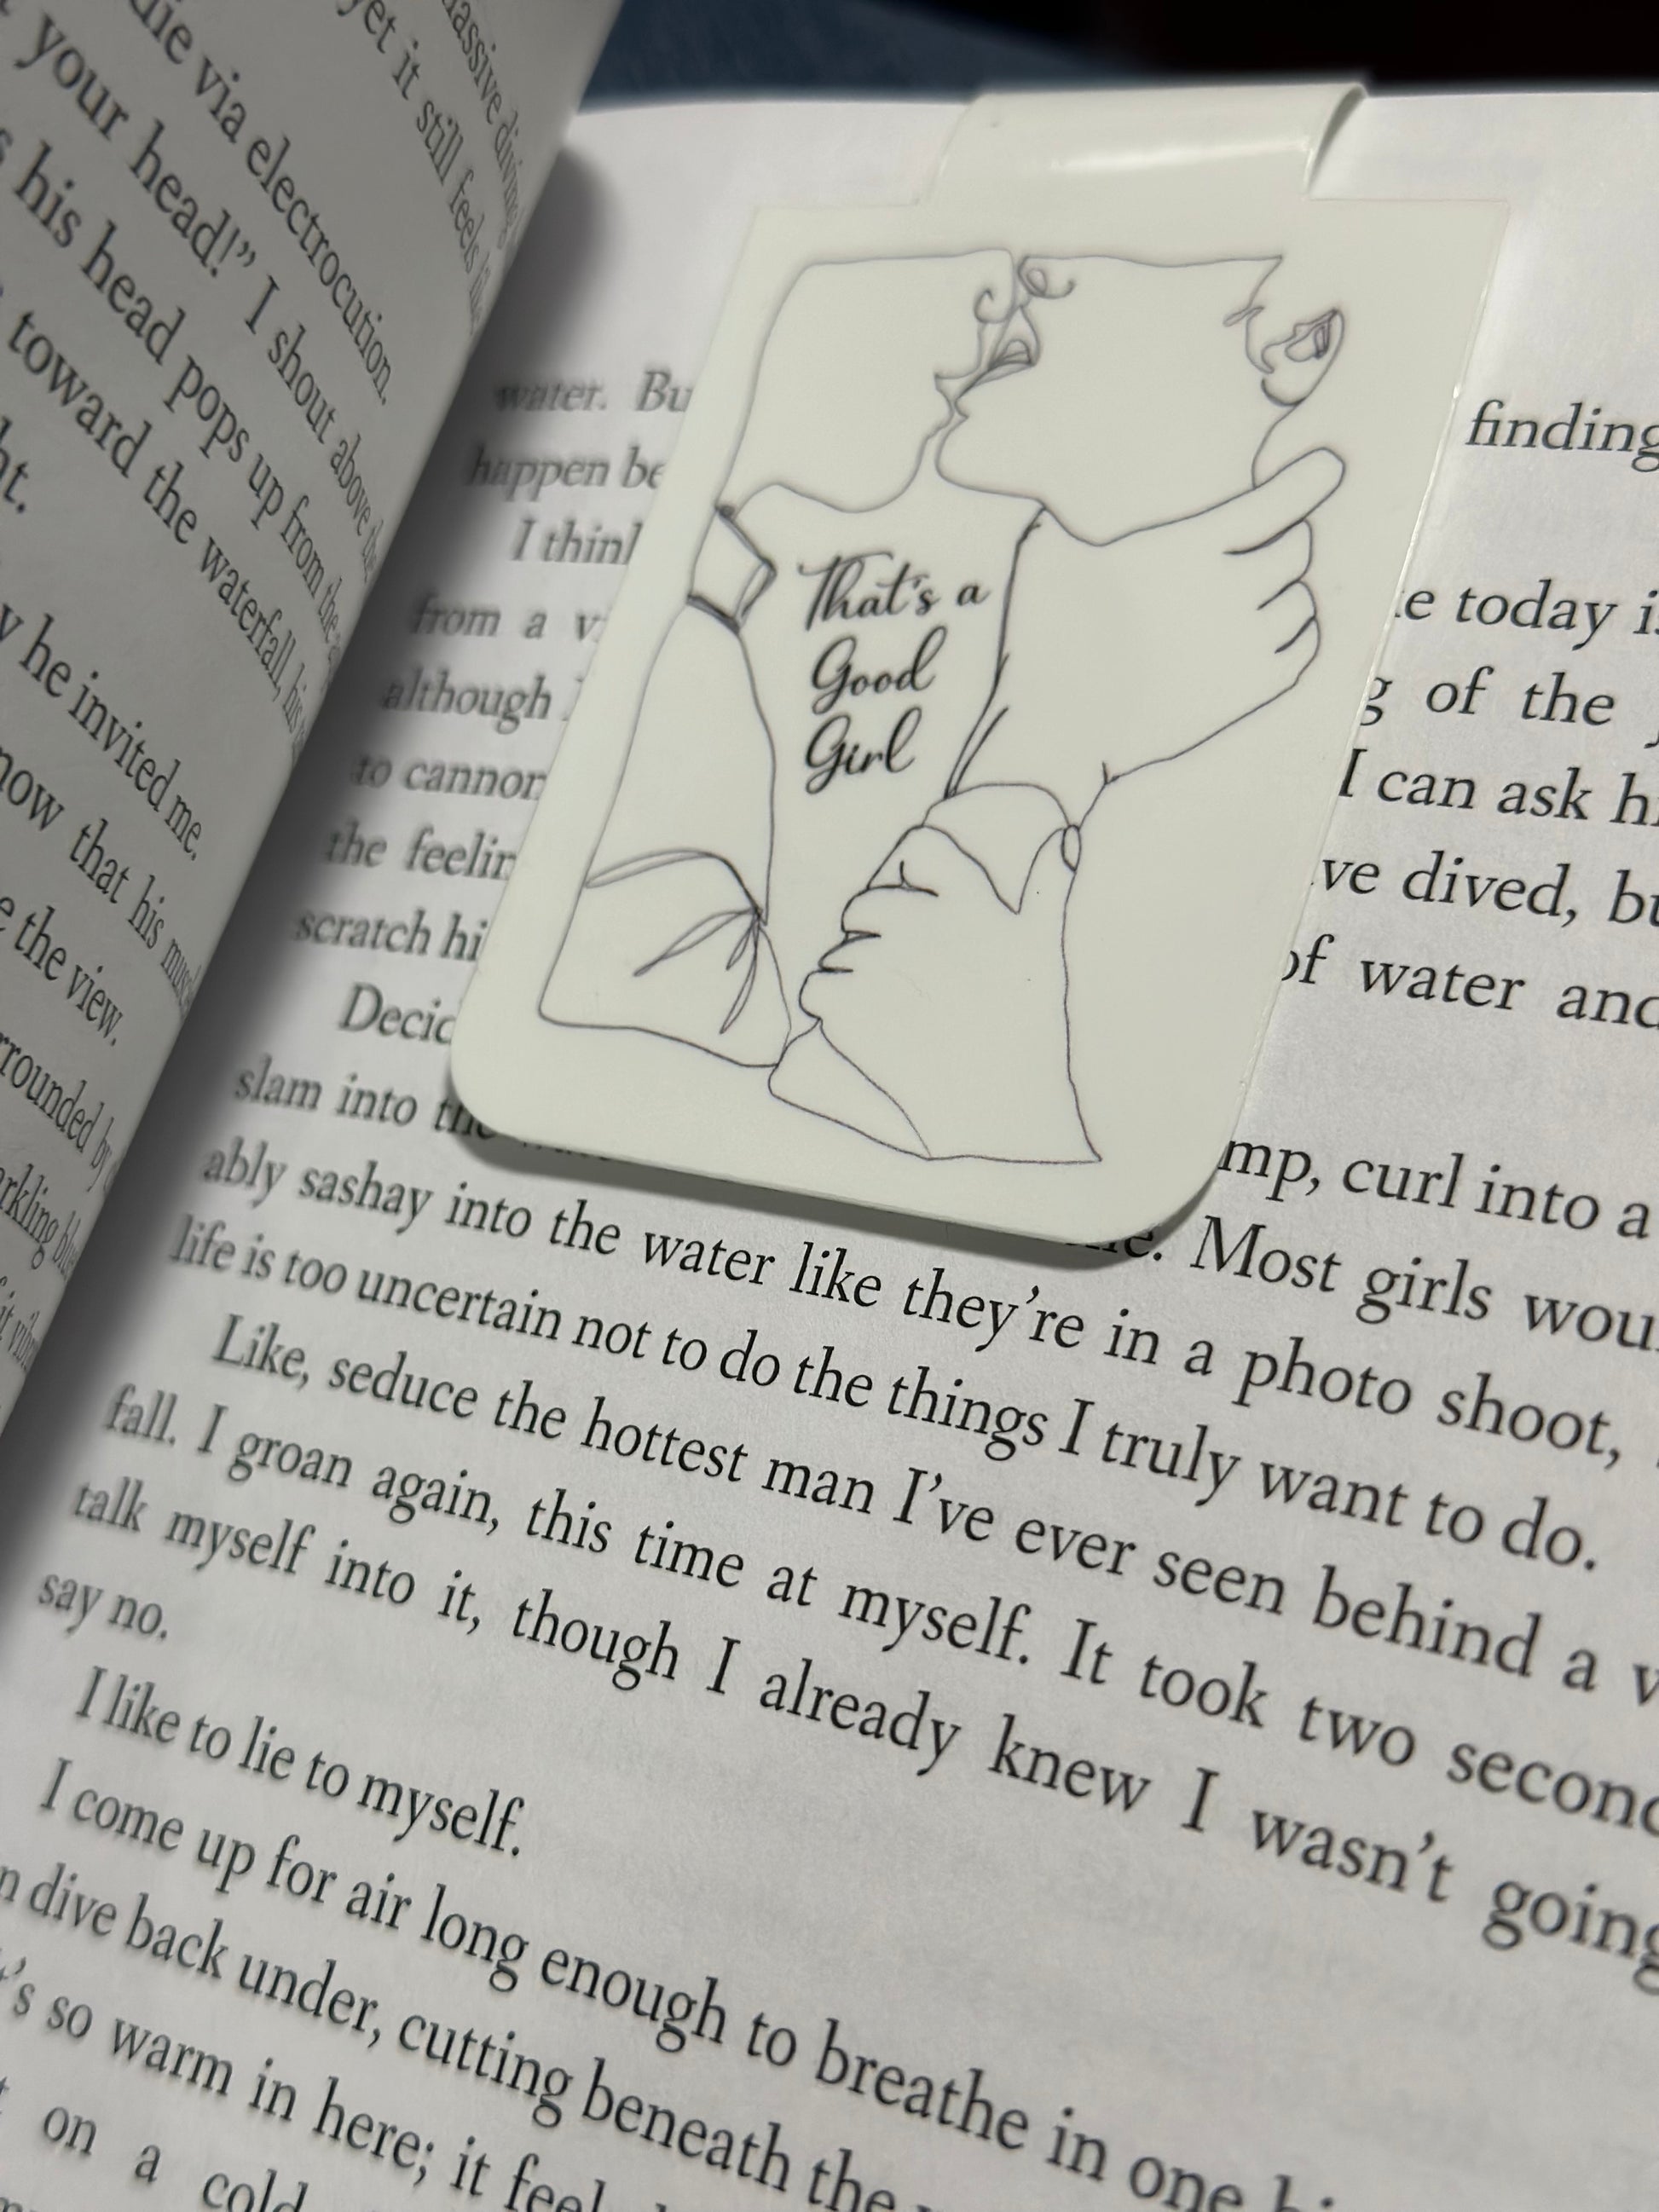 massive diving
yet it still feels
die via electrocution.
your head!” I shout above the
his head pops up from the
toward the waterfall, his
he invited me.
now that his
the view.
water. Bu
happen be
finding
I think
from a
today
although
of the
to cannon
I can ask
the feelin
ve dived,
scratch hi
of water and
Decid
slam into the
mp, curl into a
ably sashay into the water like they’re in a photo shoot,
Most girls
life is too uncertain not to do the things I truly want to do.
Like, seduce the hottest man I’ve ever seen behind a
fall. I groan again, this time at myself. It took two
talk myself into it, though I already knew I wasn’t going
say no.
I like to lie to myself.
I come up for air long enough to breathe in one
dive back under, cutting beneath the
so warm in here; it
on a cold
That's a
Good
Girl